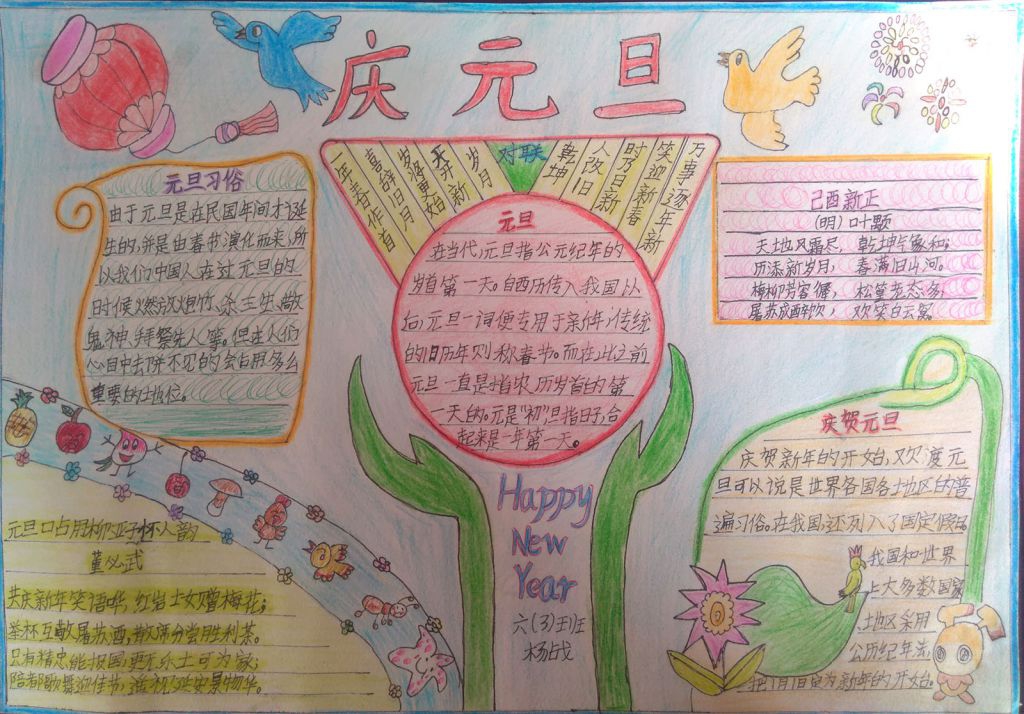 庆元旦
元旦习俗
由于元旦是在民国年间才诞
生的,并是由春节演化而来,所
以我们中国人在过元旦的
时候燃放炮竹、杀三牲、敬
鬼神、拜祭先人等。但在人们
心目中去
重要的地位。
对联
岁月
开新
岁将更始
喜辞旧月
一年春作首
乾坤
人改旧
时乃日新
笑迎新春
万事逐年新
元旦
在当代,元旦指公元纪年的
岁首第一天。自西历传入我国以
后,元旦一词便专用于新年,传统
的旧历年则称春节。而在此之前
元旦一直是指农历岁首的第
一天的。元是“初”,旦指日子,合
起来是一年第一天。
己酉新正
(明)叶颙
天地风霜尽, 乾坤气象和;
历添新岁月, 春满旧山河。
梅柳芳容徲, 松篁老态多,
屠苏成醉饮, 欢笑白云窝。
庆贺元旦
庆贺新年的开始,欢度元
旦可以说是世界各国各地区的普
遍习俗。在我国还列入了国定假日。
我国和世界
上大多数国家
地区采用
公历纪年法,
把1月1日定为新年的开始。
元旦口占用柳亚子怀人韵
董必武
共庆新年笑语哗, 红岩士女赠梅花;
举杯互敬屠苏酒, 散席分尝胜利茶。
只有精忠能报国, 更无乐土可为家;
陪都歌舞迎佳节, 遥祝延安景物华。
Happy
New
Year
六(3)班
杨战